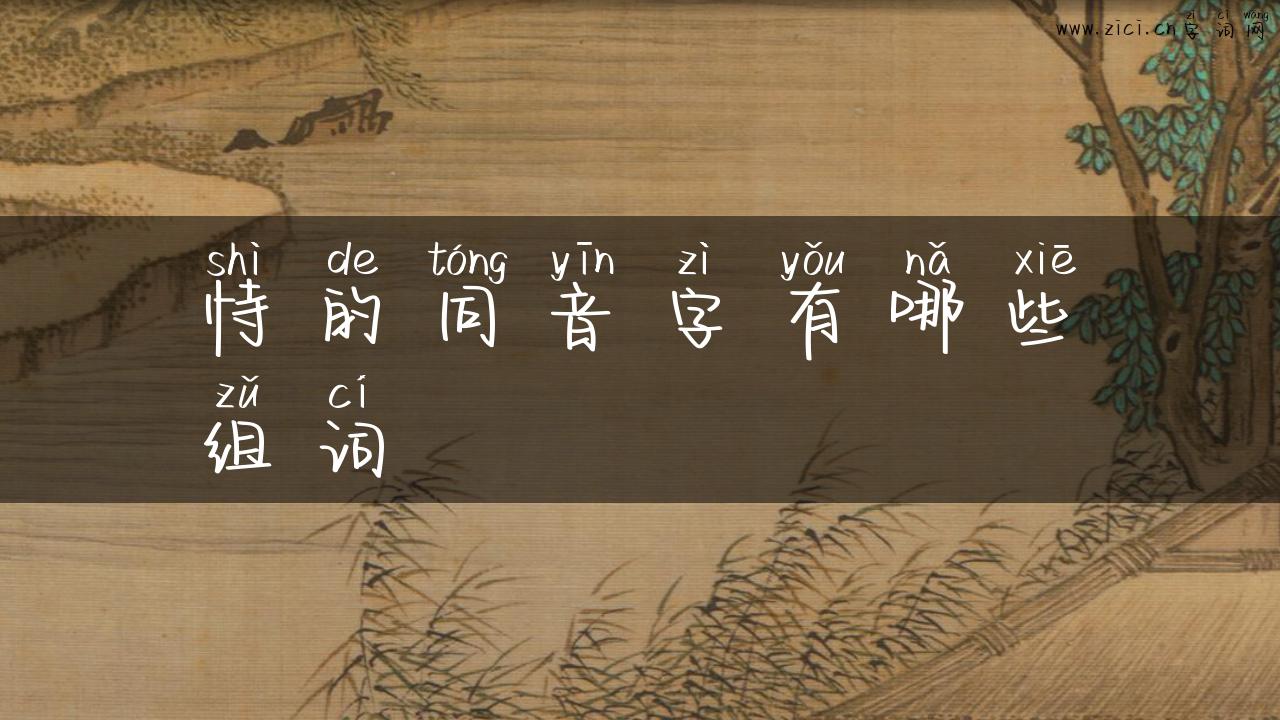 zì cí wǎng
www.zici.cn字词网
shì de tóng yīn zì yǒu nǎ xiē
恃的同音字有哪些
zǔ cí
组词